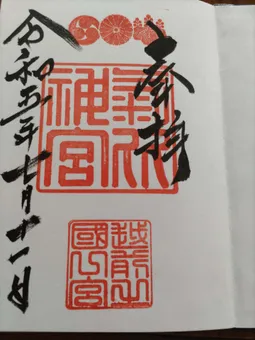 奉拝
氣比神宮
越前之國一宮
令和五年七月十一日